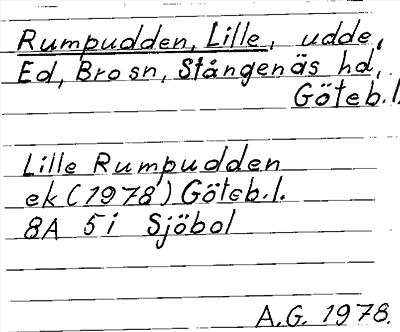 Rumpudden, Lille, udde,
Ed, Bro sn, Stångenäs hd,
Göteb.l.
Lille Rumpudden
ek (1978) Göteb.l.
8A 5i Sjöbol
A.G. 1978.